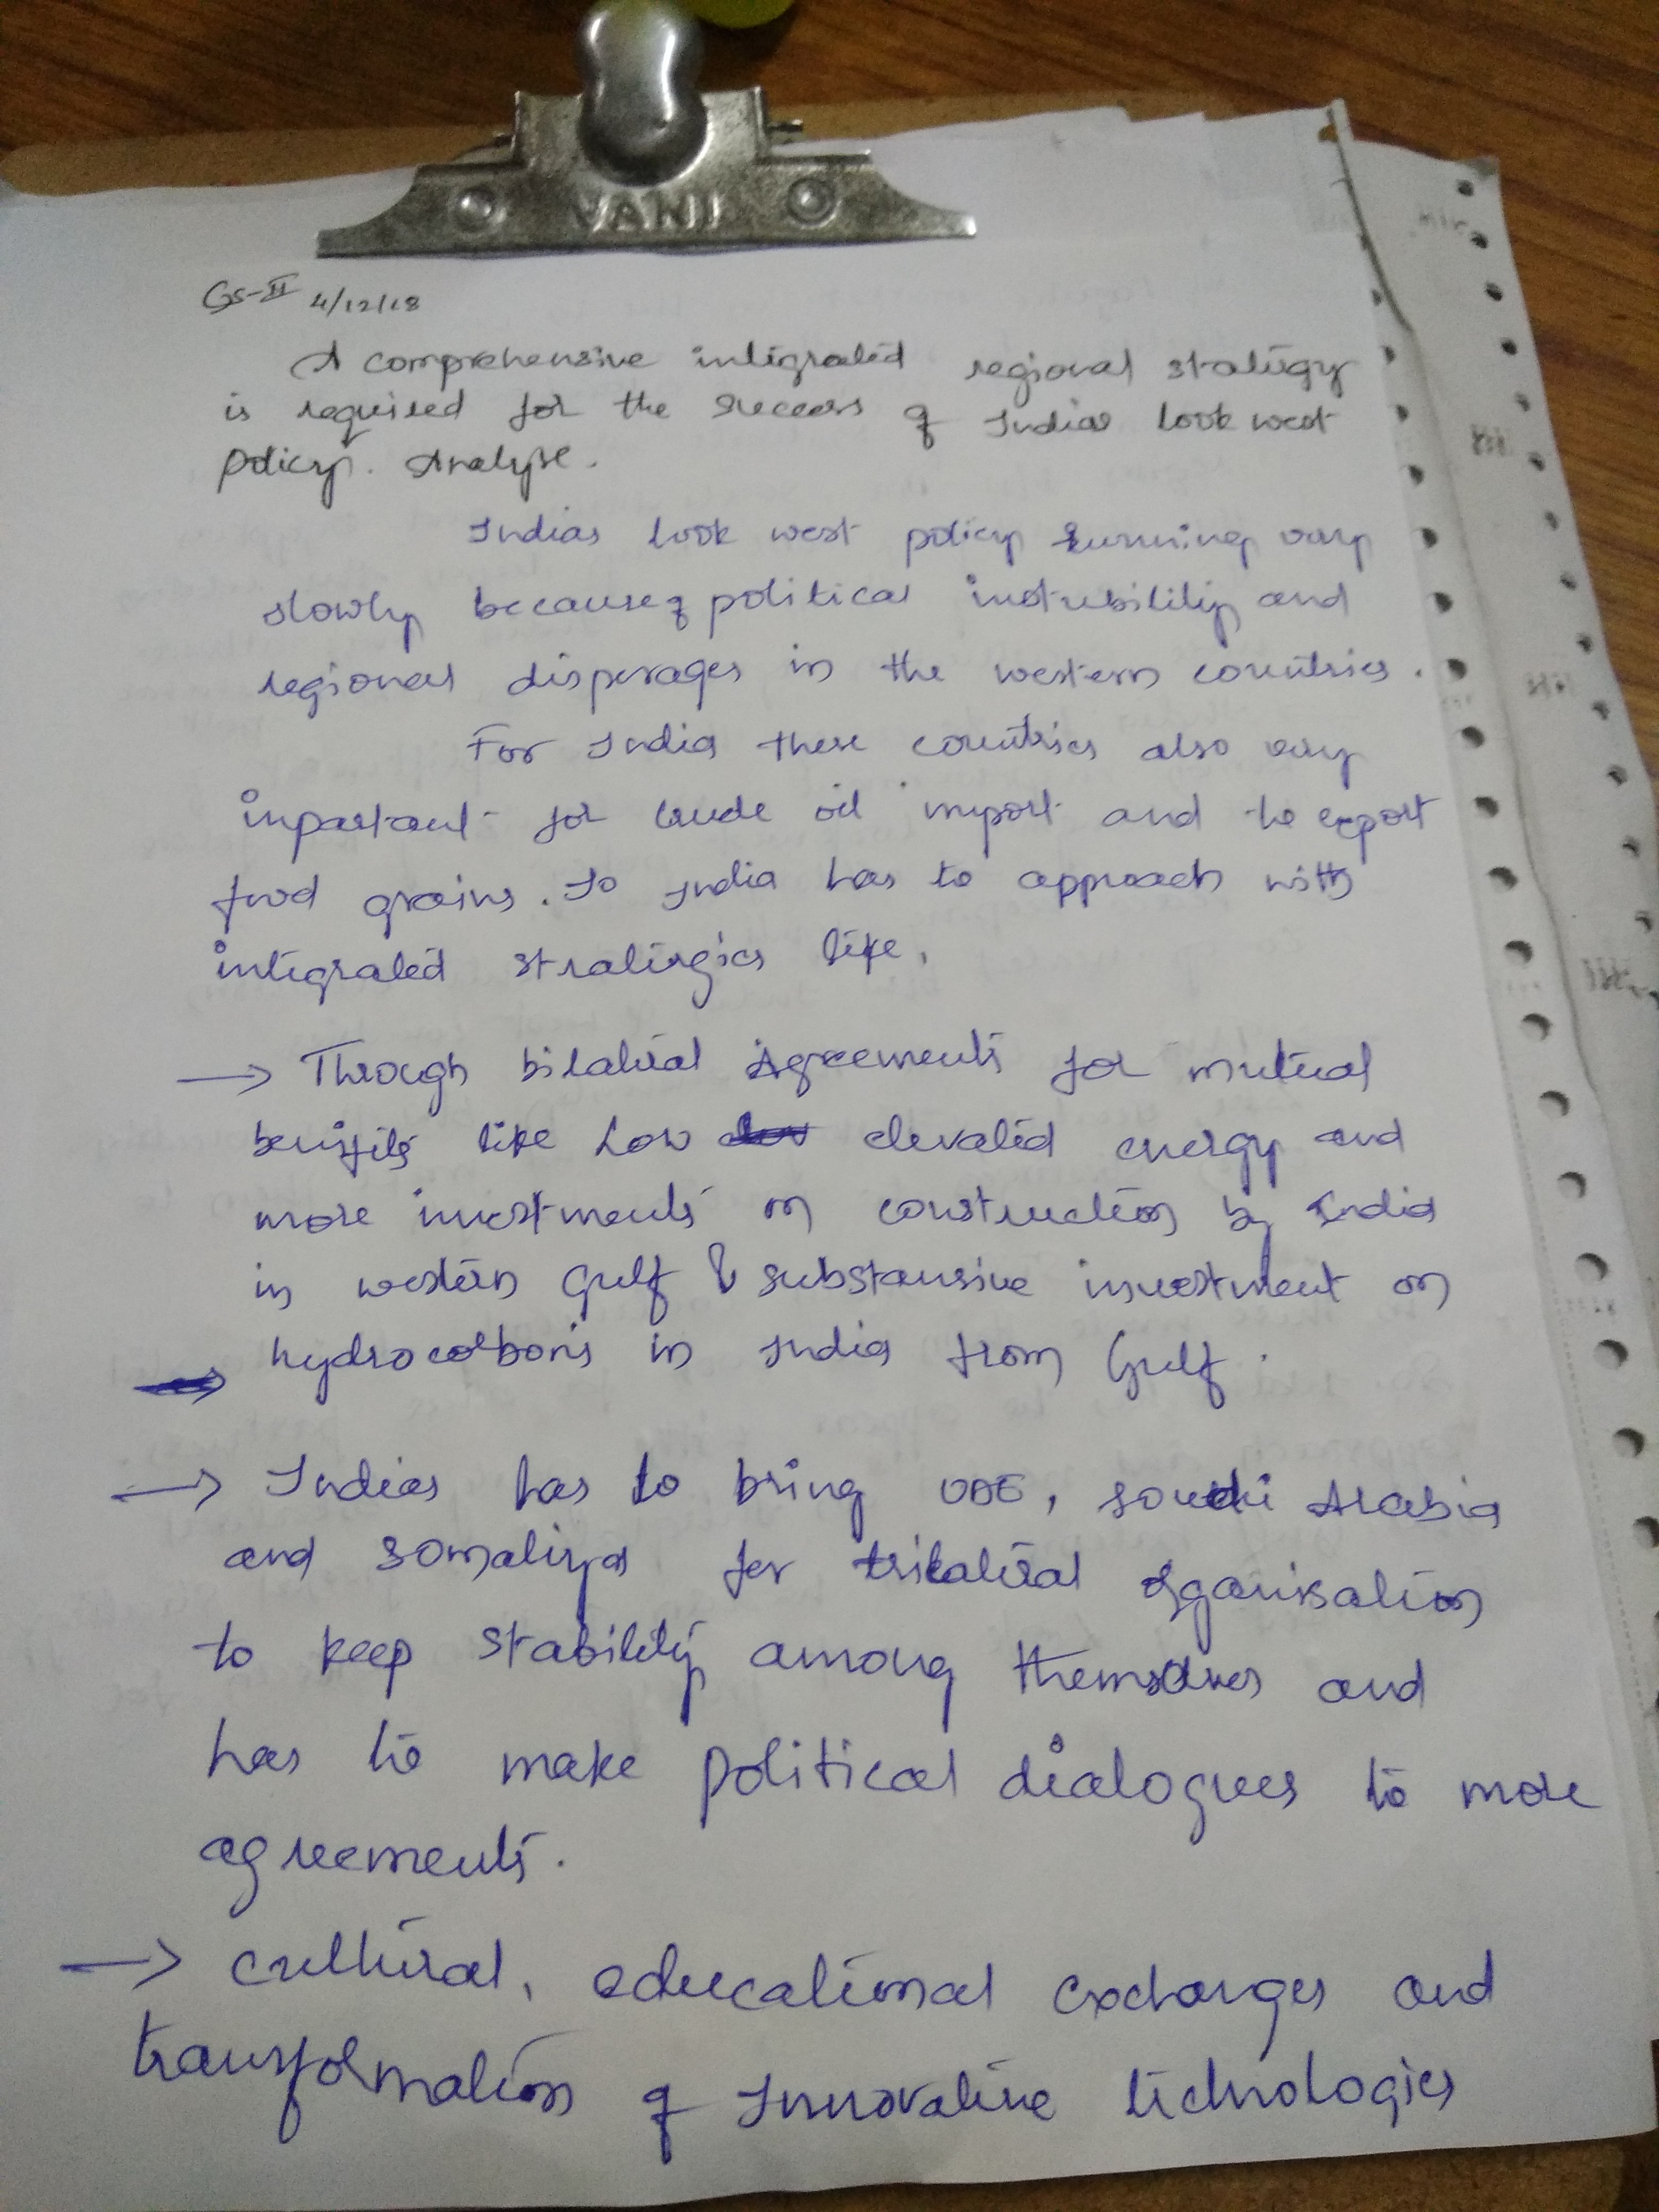 VANI
GS-II 4/12/18
A comprehensive integrated regional strategy
is required for the success of Indias look west
policy. Analyse.
Indias look west policy running very
slowly because of political instability and
regional disperages in the western countries.
For India these countries also very
inportant for crude oil import and to export
food grains. So India has to approach with
integrated stratergies like,
→ Through bilateral Agreements for mutual
benifits like low elevated energy and
more investments on construction by India
in western Gulf & substansive investment on
hydrocarbons in India from Gulf.
→ Indias has to bring UAE, soudi Arabia
and somaliya for trilateral organisation
to keep stability among themselves and
has to make political dialogues to more
agreements.
→ cultural, educational exchanges and
transformation of Innovative technologies